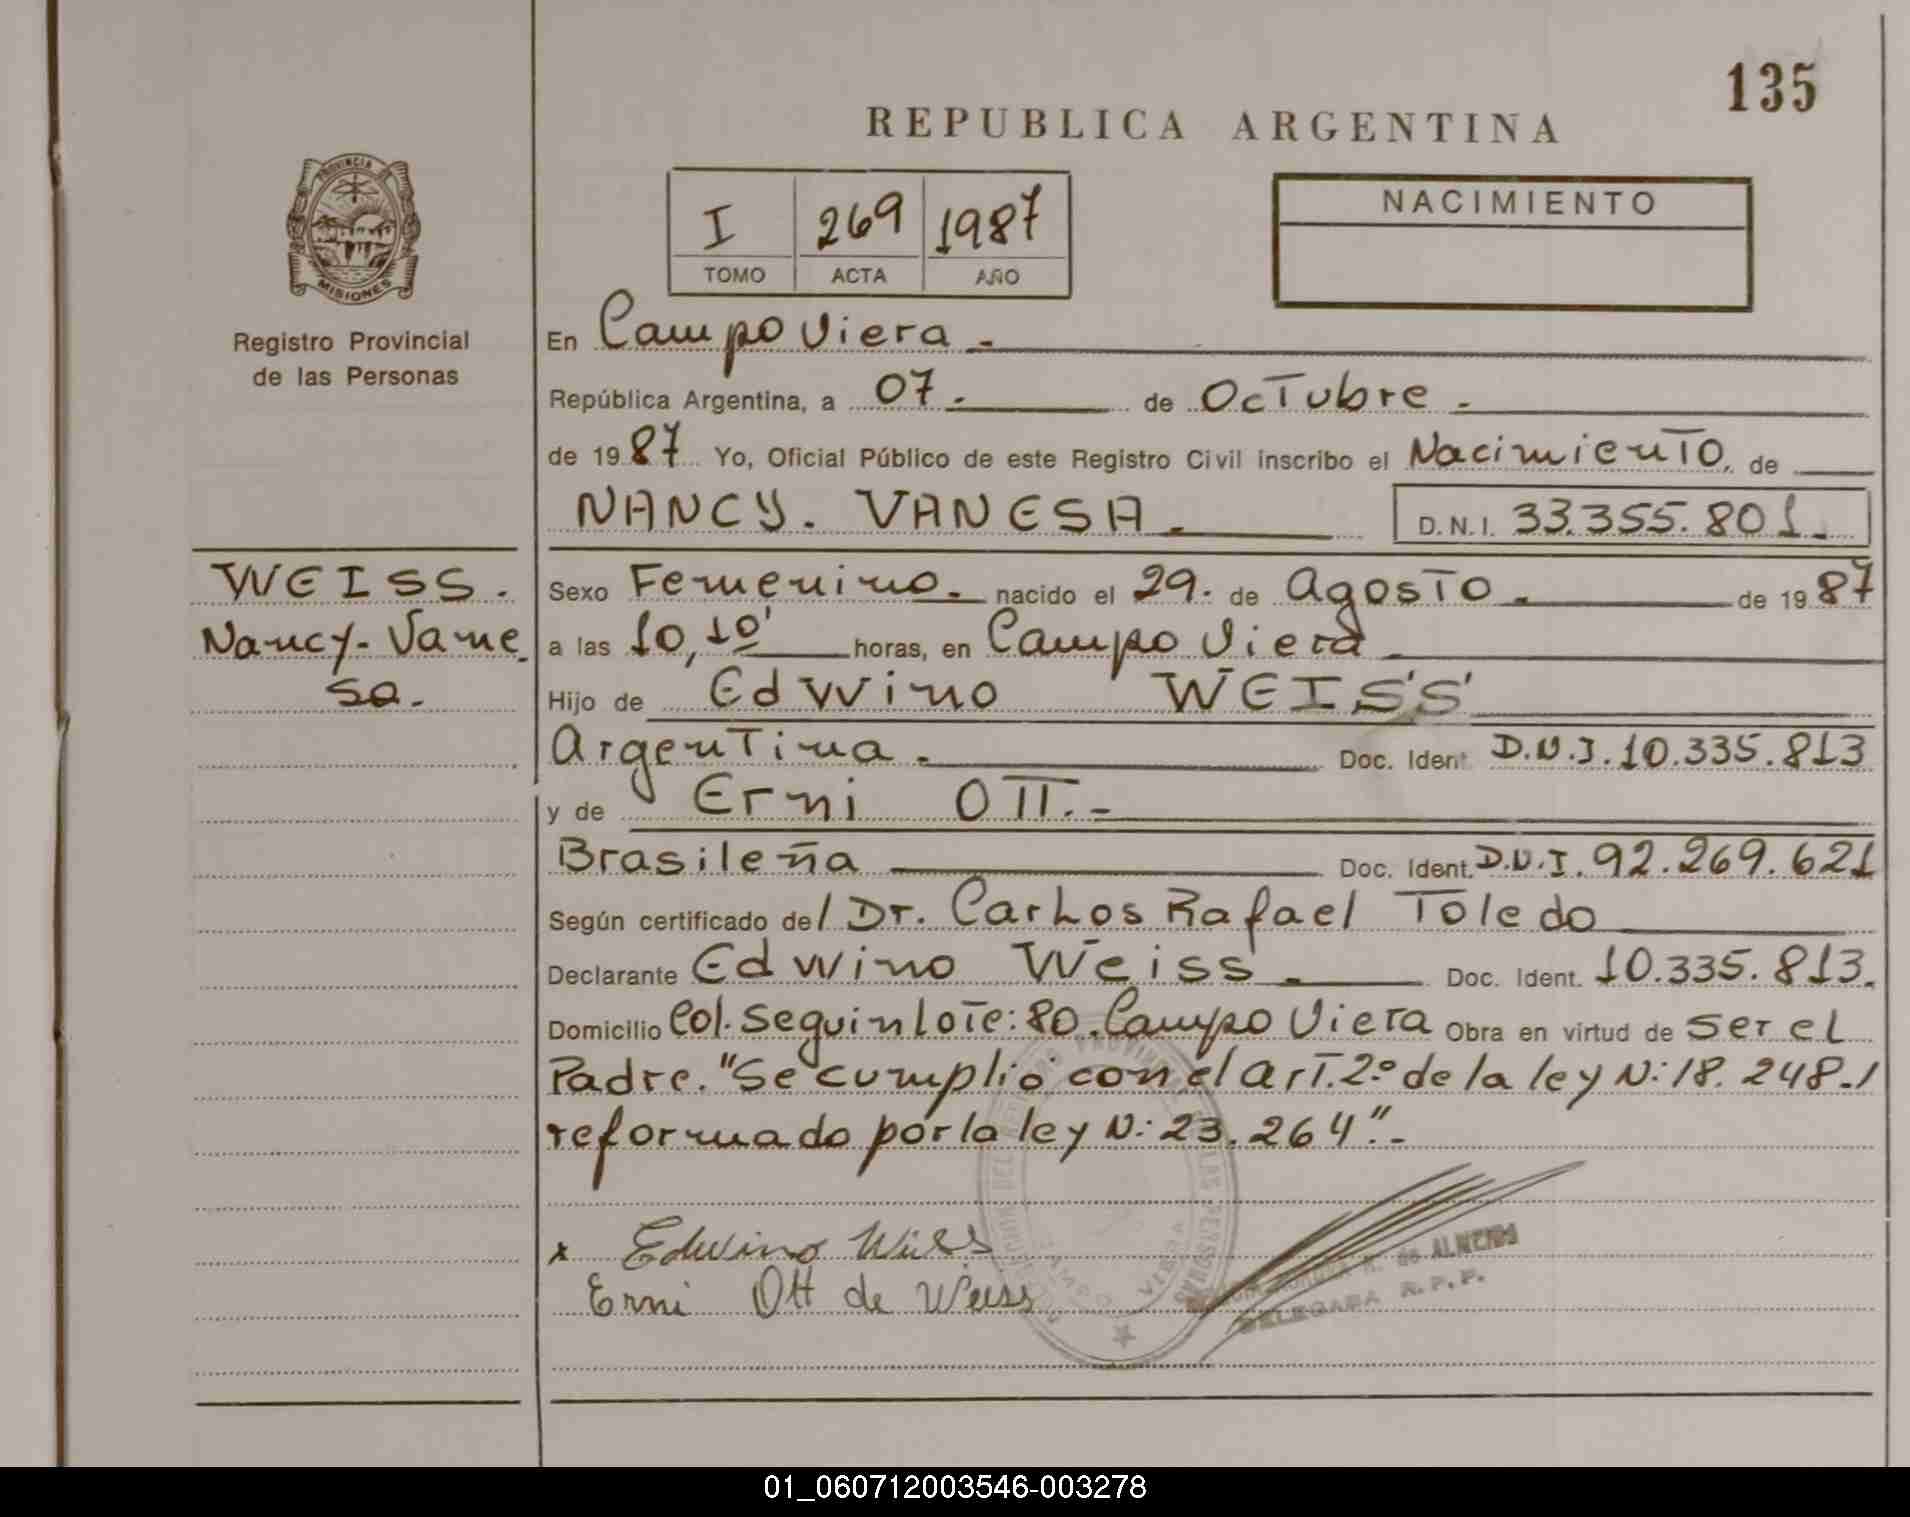 135
REPUBLICA ARGENTINA
PROVINCIA
MISIONES
Registro Provincial
de las Personas
I 269 1987
TOMO ACTA AÑO
NACIMIENTO
En Campo Viera.-
República Argentina, a 07. de Octubre.
de 1987 Yo, Oficial Público de este Registro Civil inscribo el Nacimiento, de
NANCY. VANESA. D.N.I. 33.355.801.
WEISS.
Nancy-Vane
sa.
Sexo Femenino. nacido el 29. de Agosto. de 1987
a las 10,10' horas, en Campo Viera
Hijo de Edwino WEISS
Argentina. Doc. Ident. D.N.I. 10.335.813
y de Erni OTT.-
Brasileña Doc. Ident. D.N.I. 92.269.621
Según certificado del Dr. Carlos Rafael Toledo
Declarante Edwino Weiss. Doc. Ident. 10.335.813.
Domicilio Col. Seguin lote: 80. Campo Viera Obra en virtud de ser el
Padre. "Se cumplio con el art. 2º de la ley N: 18.248.1
reformado por la ley N: 23.264".-
x Edwino Weiss
Erni Ott de Weiss
de ALMEIDA
DELEGADA R.P.P.
01_060712003546-003278